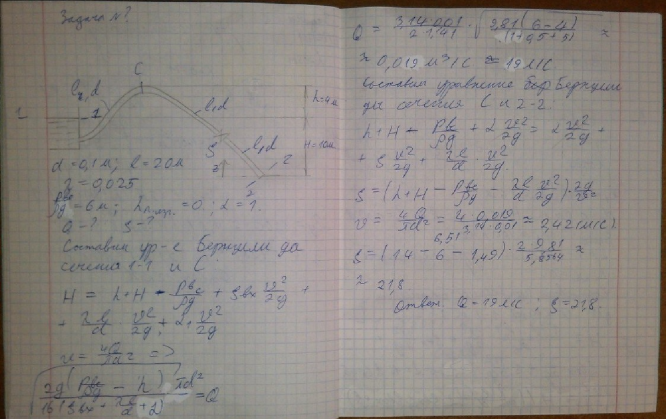 Задача №7.
C
l, d
l, d
h=4м
1
H=10м
l, d
ζ
2
2
d = 0,1м; l = 20м
λ = 0,025
Pвс/ρg = 6м; hп.кр. = 0; α = 1.
Q - ? ζ - ?
Составим ур-е Бернулли для
сечения 1-1 и C
H = h + H - Pвс/ρg + ζвх v²/2g +
+ λl/d · v²/2g + α v²/2g
v = 4Q/πd² =>
√(2g(Pвс/ρg - h) πd² / 16(ζвх + λl/d + α)) = Q
Q = 3,14·0,01/2·1,41 · √(9,81(6-4)/(1+0,5+5)) ≈
≈ 0,019 м³/с ≈ 19 л/с
Составим уравнение Бернулли
для сечения C и 2-2.
h + H - Pвс/ρg + α v²/2g = α v²/2g +
+ ζ v²/2g + λl/d · v²/2g
ζ = (h + H - Pвс/ρg - λl/d · v²/2g) · 2g/v²
v = 4Q/πd² = 4·0,019/3,14·0,01 = 2,42 (м/с)
ζ = (14 - 6 - 1,49) · 2·9,81/5,8564 ≈
6,51
≈ 21,8
Ответ: Q = 19 л/с; ζ = 21,8.